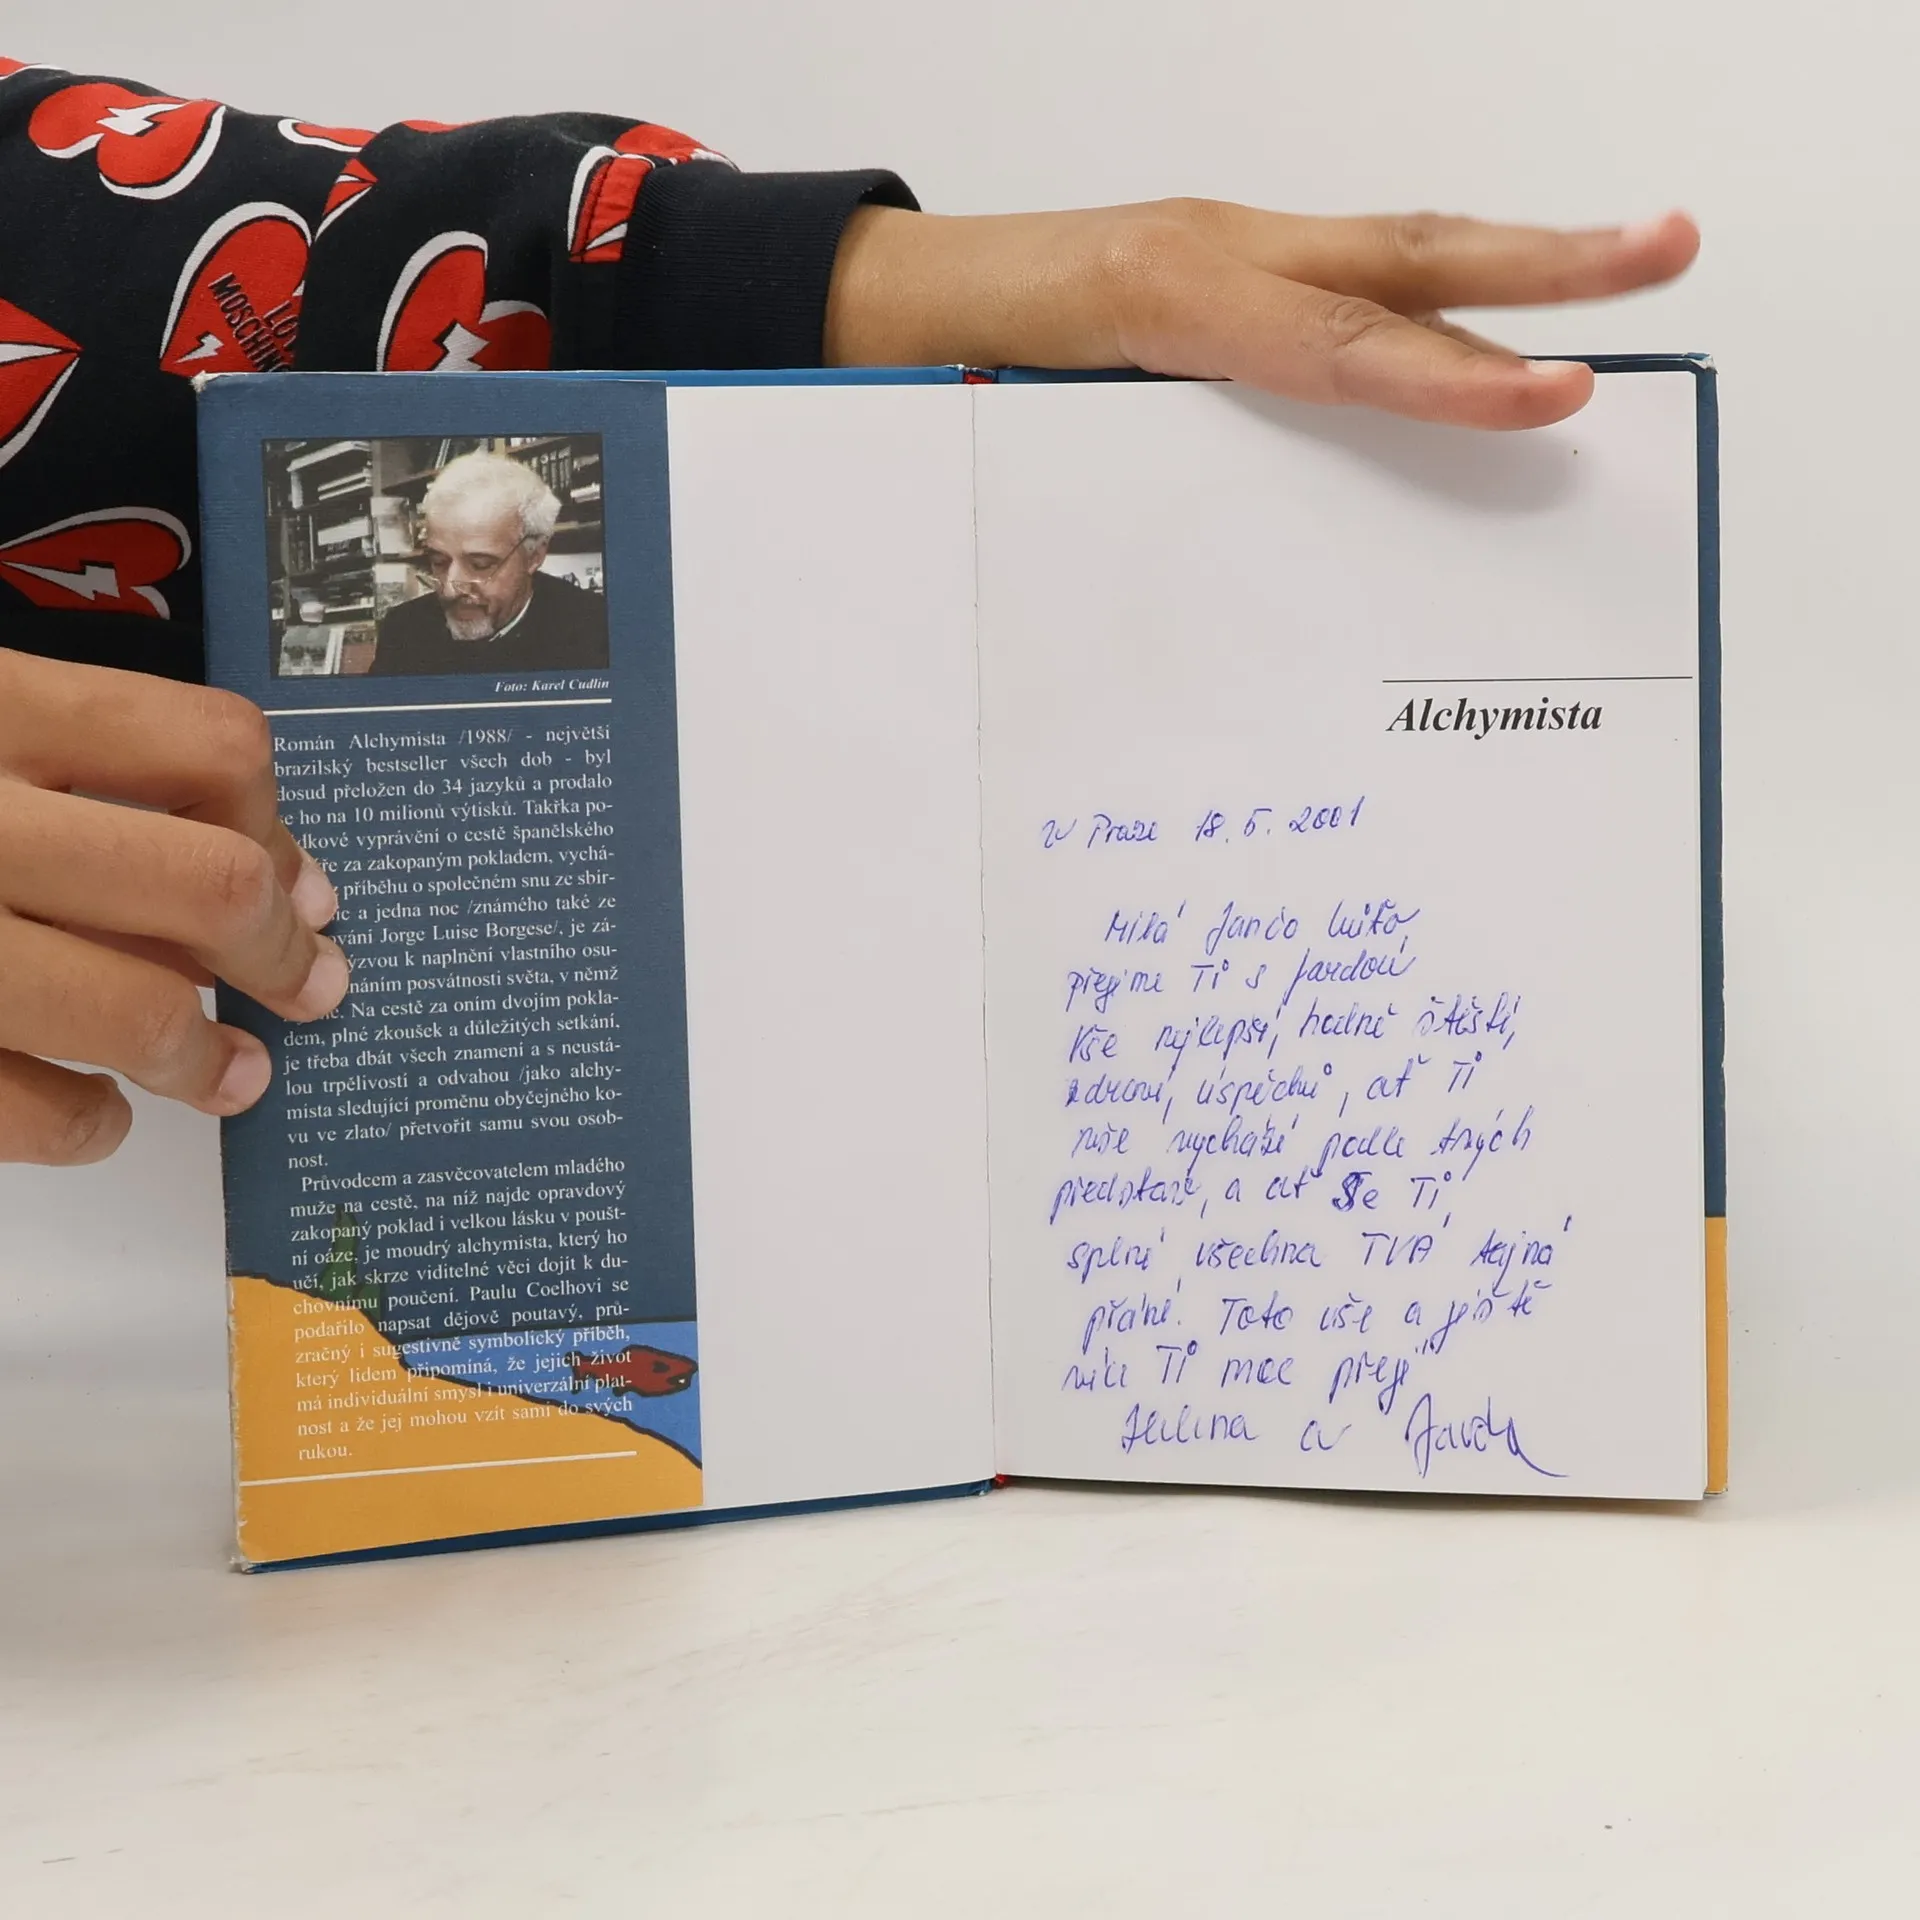 LO
MOSCHIN
Foto: Karel Cudlín
Román Alchymista /1988/ - největší
brazilský bestseller všech dob - byl
dosud přeložen do 34 jazyků a prodalo
se ho na 10 milionů výtisků. Takřka po-
dkové vyprávění o cestě španělského
ře za zakopaným pokladem, vychá-
z příběhu o společném snu ze sbír-
ic a jedna noc /známého také ze
ování Jorge Luise Borgese/, je zá-
ýzvou k naplnění vlastního osu-
náním posvátnosti světa, v němž
Na cestě za oním dvojím pokla-
dem, plné zkoušek a důležitých setkání,
je třeba dbát všech znamení a s neustá-
lou trpělivostí a odvahou /jako alchy-
mista sledující proměnu obyčejného ko-
vu ve zlato/ přetvořit samu svou osob-
nost.
Průvodcem a zasvěcovatelem mladého
muže na cestě, na níž najde opravdový
zakopaný poklad i velkou lásku v poušt-
ní oáze, je moudrý alchymista, který ho
učí, jak skrze viditelné věci dojít k du-
chovnímu poučení. Paulu Coelhovi se
podařilo napsat dějově poutavý, prů-
zračný i sugestivně symbolický příběh,
který lidem připomíná, že jejich život
má individuální smysl i univerzální plat-
nost a že jej mohou vzít sami do svých
rukou.
Alchymista
V Praze 18. 5. 2001
Milá
přejeme Ti s Jardou
vše nejlepší, hodně štěstí,
zdraví, úspěchů, ať Ti
vše vychází podle tvých
představ, a ať Se Ti
splní všechna TVÁ tajná
přání. Toto vše a ještě
víc Ti moc přejí
Helena a Jarda